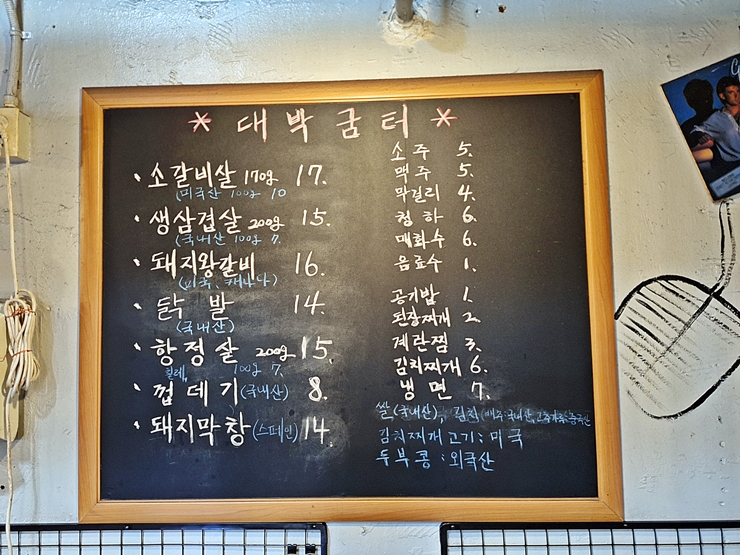 * 대 박 굼 터 *
· 소갈비살 170g 17.
(미국산 100g 10
· 생삼겹살 200g 15.
(국내산 100g 7.
· 돼지왕갈비 16.
(미국, 캐나다)
· 닭 발 14.
(국내산)
· 항정살 200g 15.
칠레, 100g 7.
· 껍데기 (국내산) 8.
· 돼지막창 (스페인) 14.
소 주 5.
맥 주 5.
막걸리 4.
청 하 6.
매화수 6.
음료수 1.
공기밥 1.
된장찌개 2.
계란찜 3.
김치찌개 6.
냉 면 7.
쌀(국내산), 김치(배추:국내산, 고추가루:중국산
김치찌개 고기 : 미국
두부콩 : 외국산